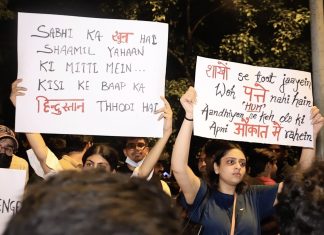 SABHI KA खून HAI
SHAAMIL YAHAAN
KI MITTI MEIN...
KISI KE BAAP KA
हिन्दुस्तान THHODI HAI
शाखों se toot jaayein
Woh पत्ते nahi hain
"HUM"
Aandhiyon se keh do ki
Apni औकात में rahein